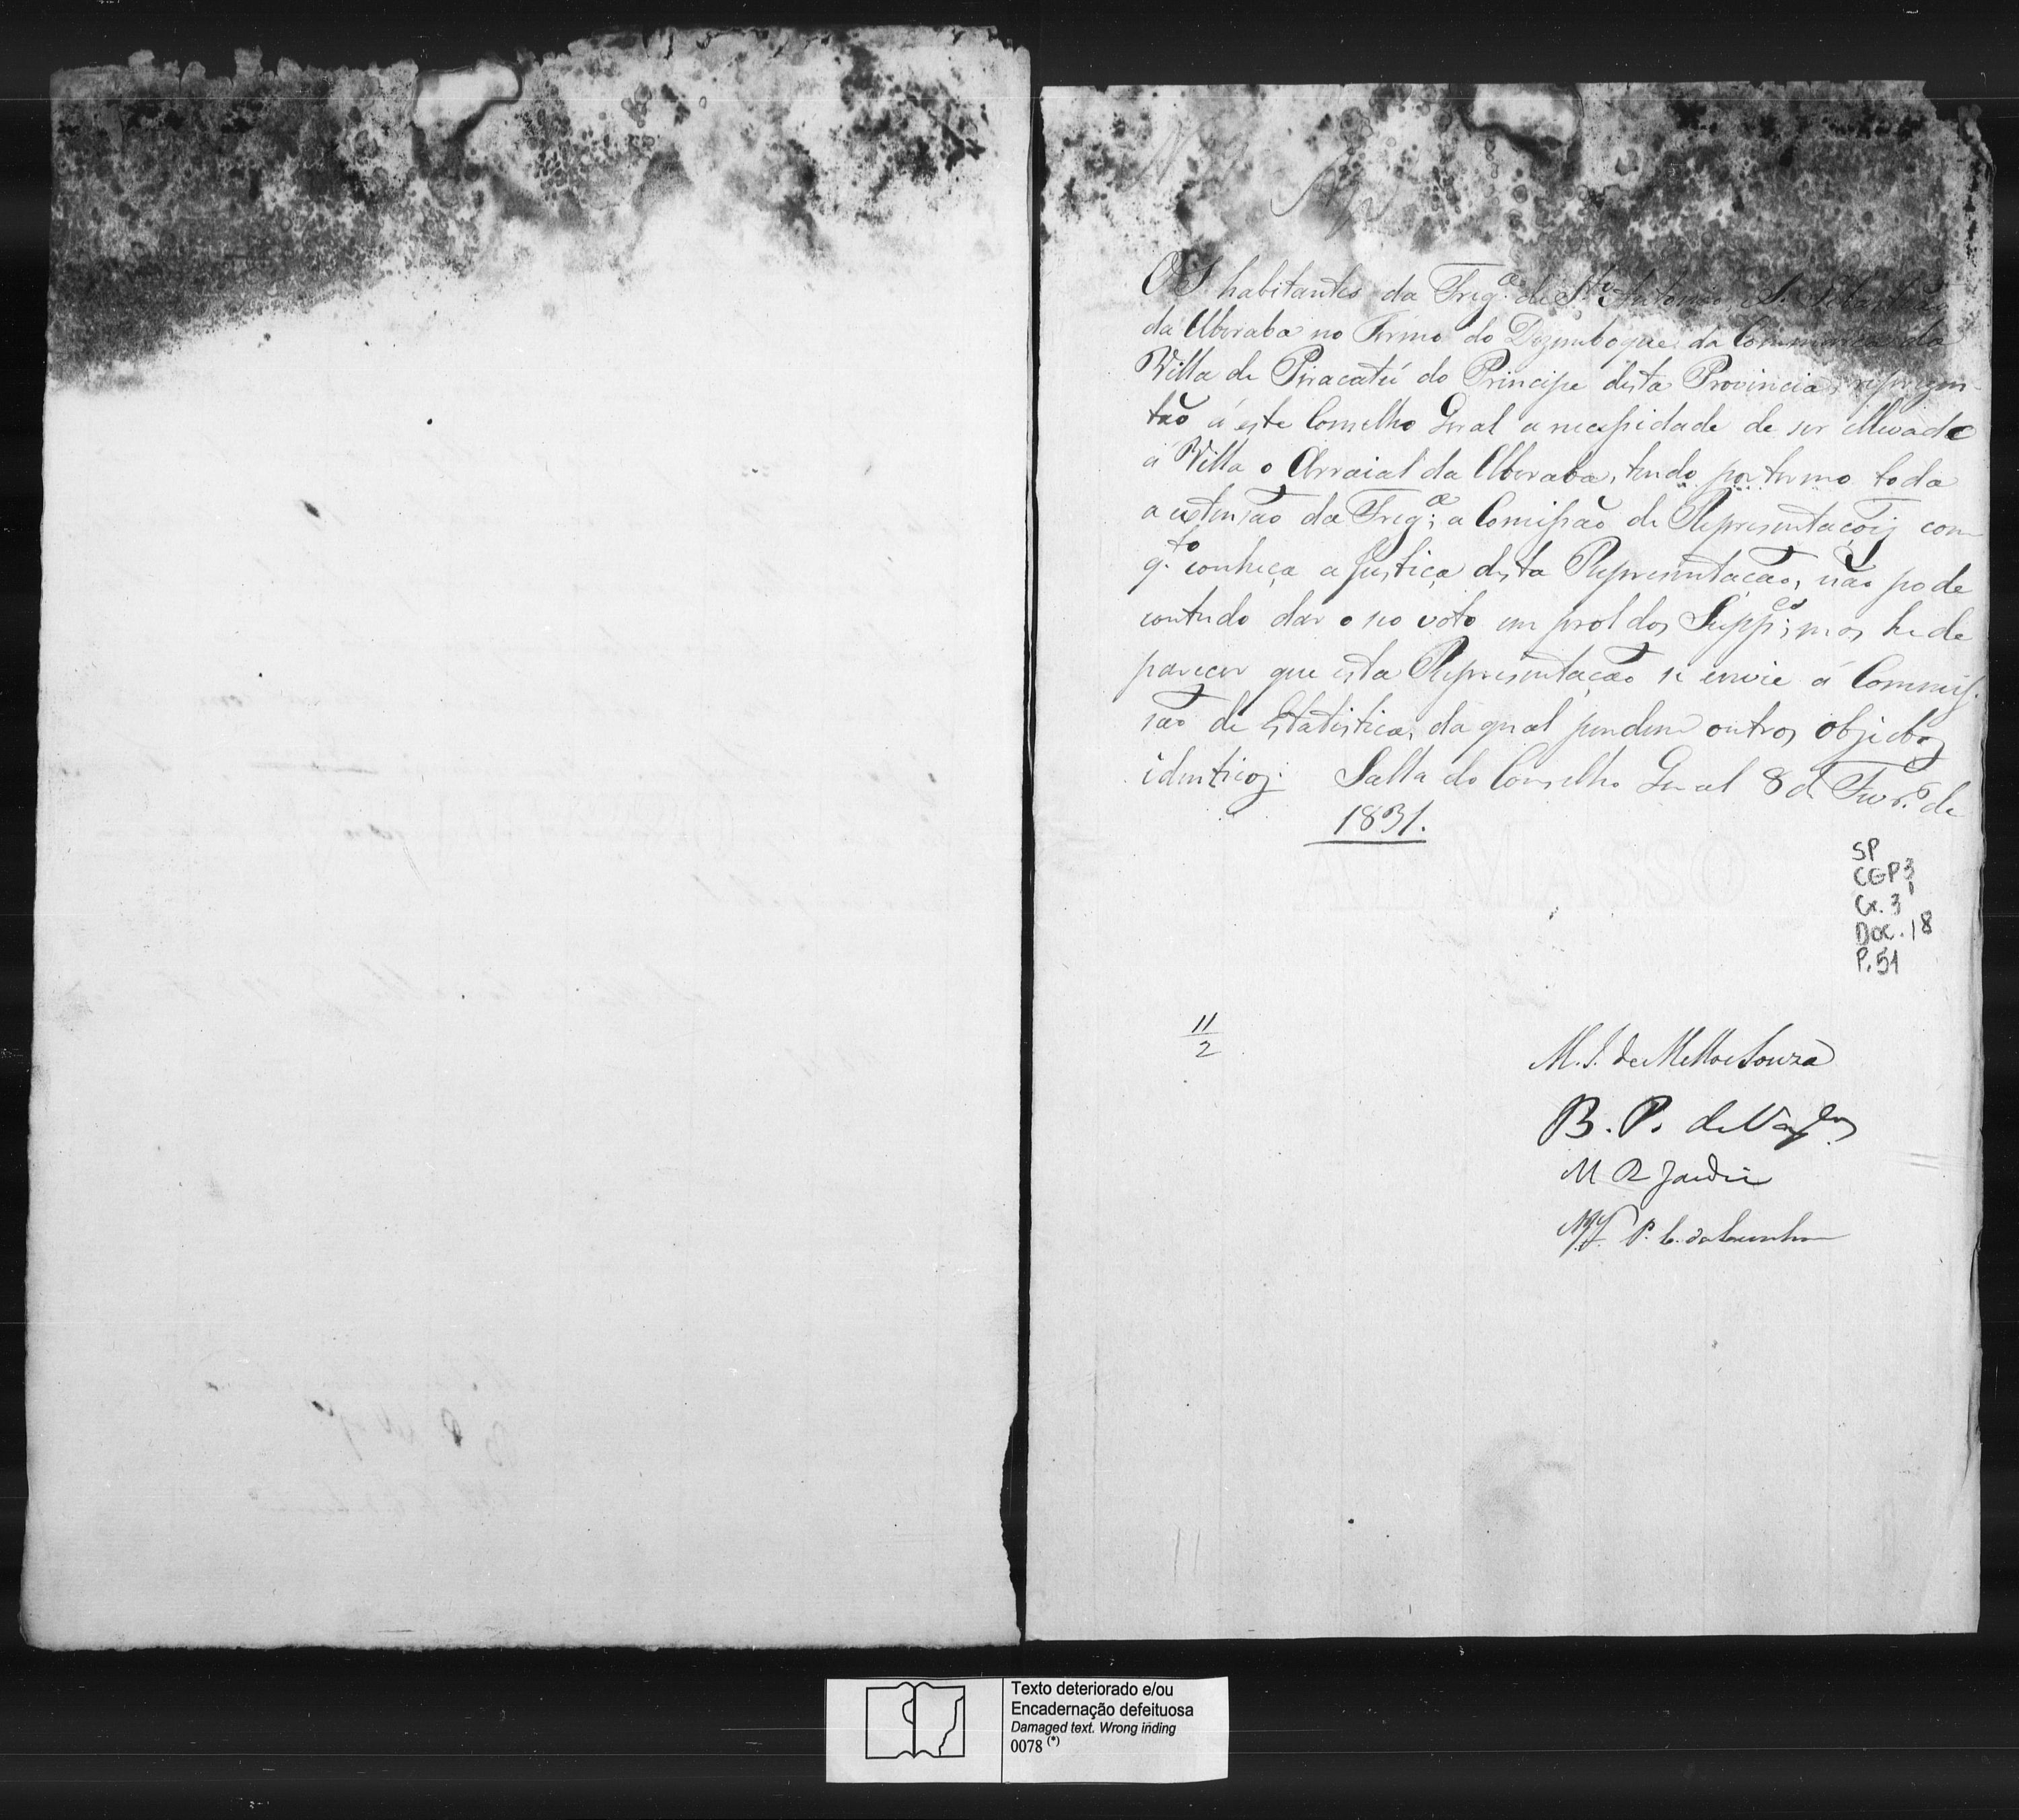 Os habitantes da Freg.ª de S.to Antonio, e S. Sebastião
da Uberaba no Termo do Dezemboque da Commarca da
Villa de Piracatú do Principe desta Provincia, reprezen-
tão á este Conselho Geral a necessidade de ser ellevado
á Villa o Arraial da Uberaba, tendo por termo toda
a extensão da Freg.ª; a Comissão de Representaçoẽs com
q.to conheça a justiça desta Representação, não pode
contudo dar o seo voto em prol dos Supp.es; mas he de
parecer que esta Representação se envie á Commis-
são de Estatistica, da qual pendem outros objectos
identicos. Salla do Conselho Geral 8 de Fever.º de
1831.
SP
CGP3
Cx. 3
Doc. 18
P. 51
11
2
M. I. de Mello e Souza
B. P. de Vas.los
M R Jardim
P. C. da Cunha
Texto deteriorado e/ou
Encadernação defeituosa
Damaged text. Wrong iñding
0078 (*)